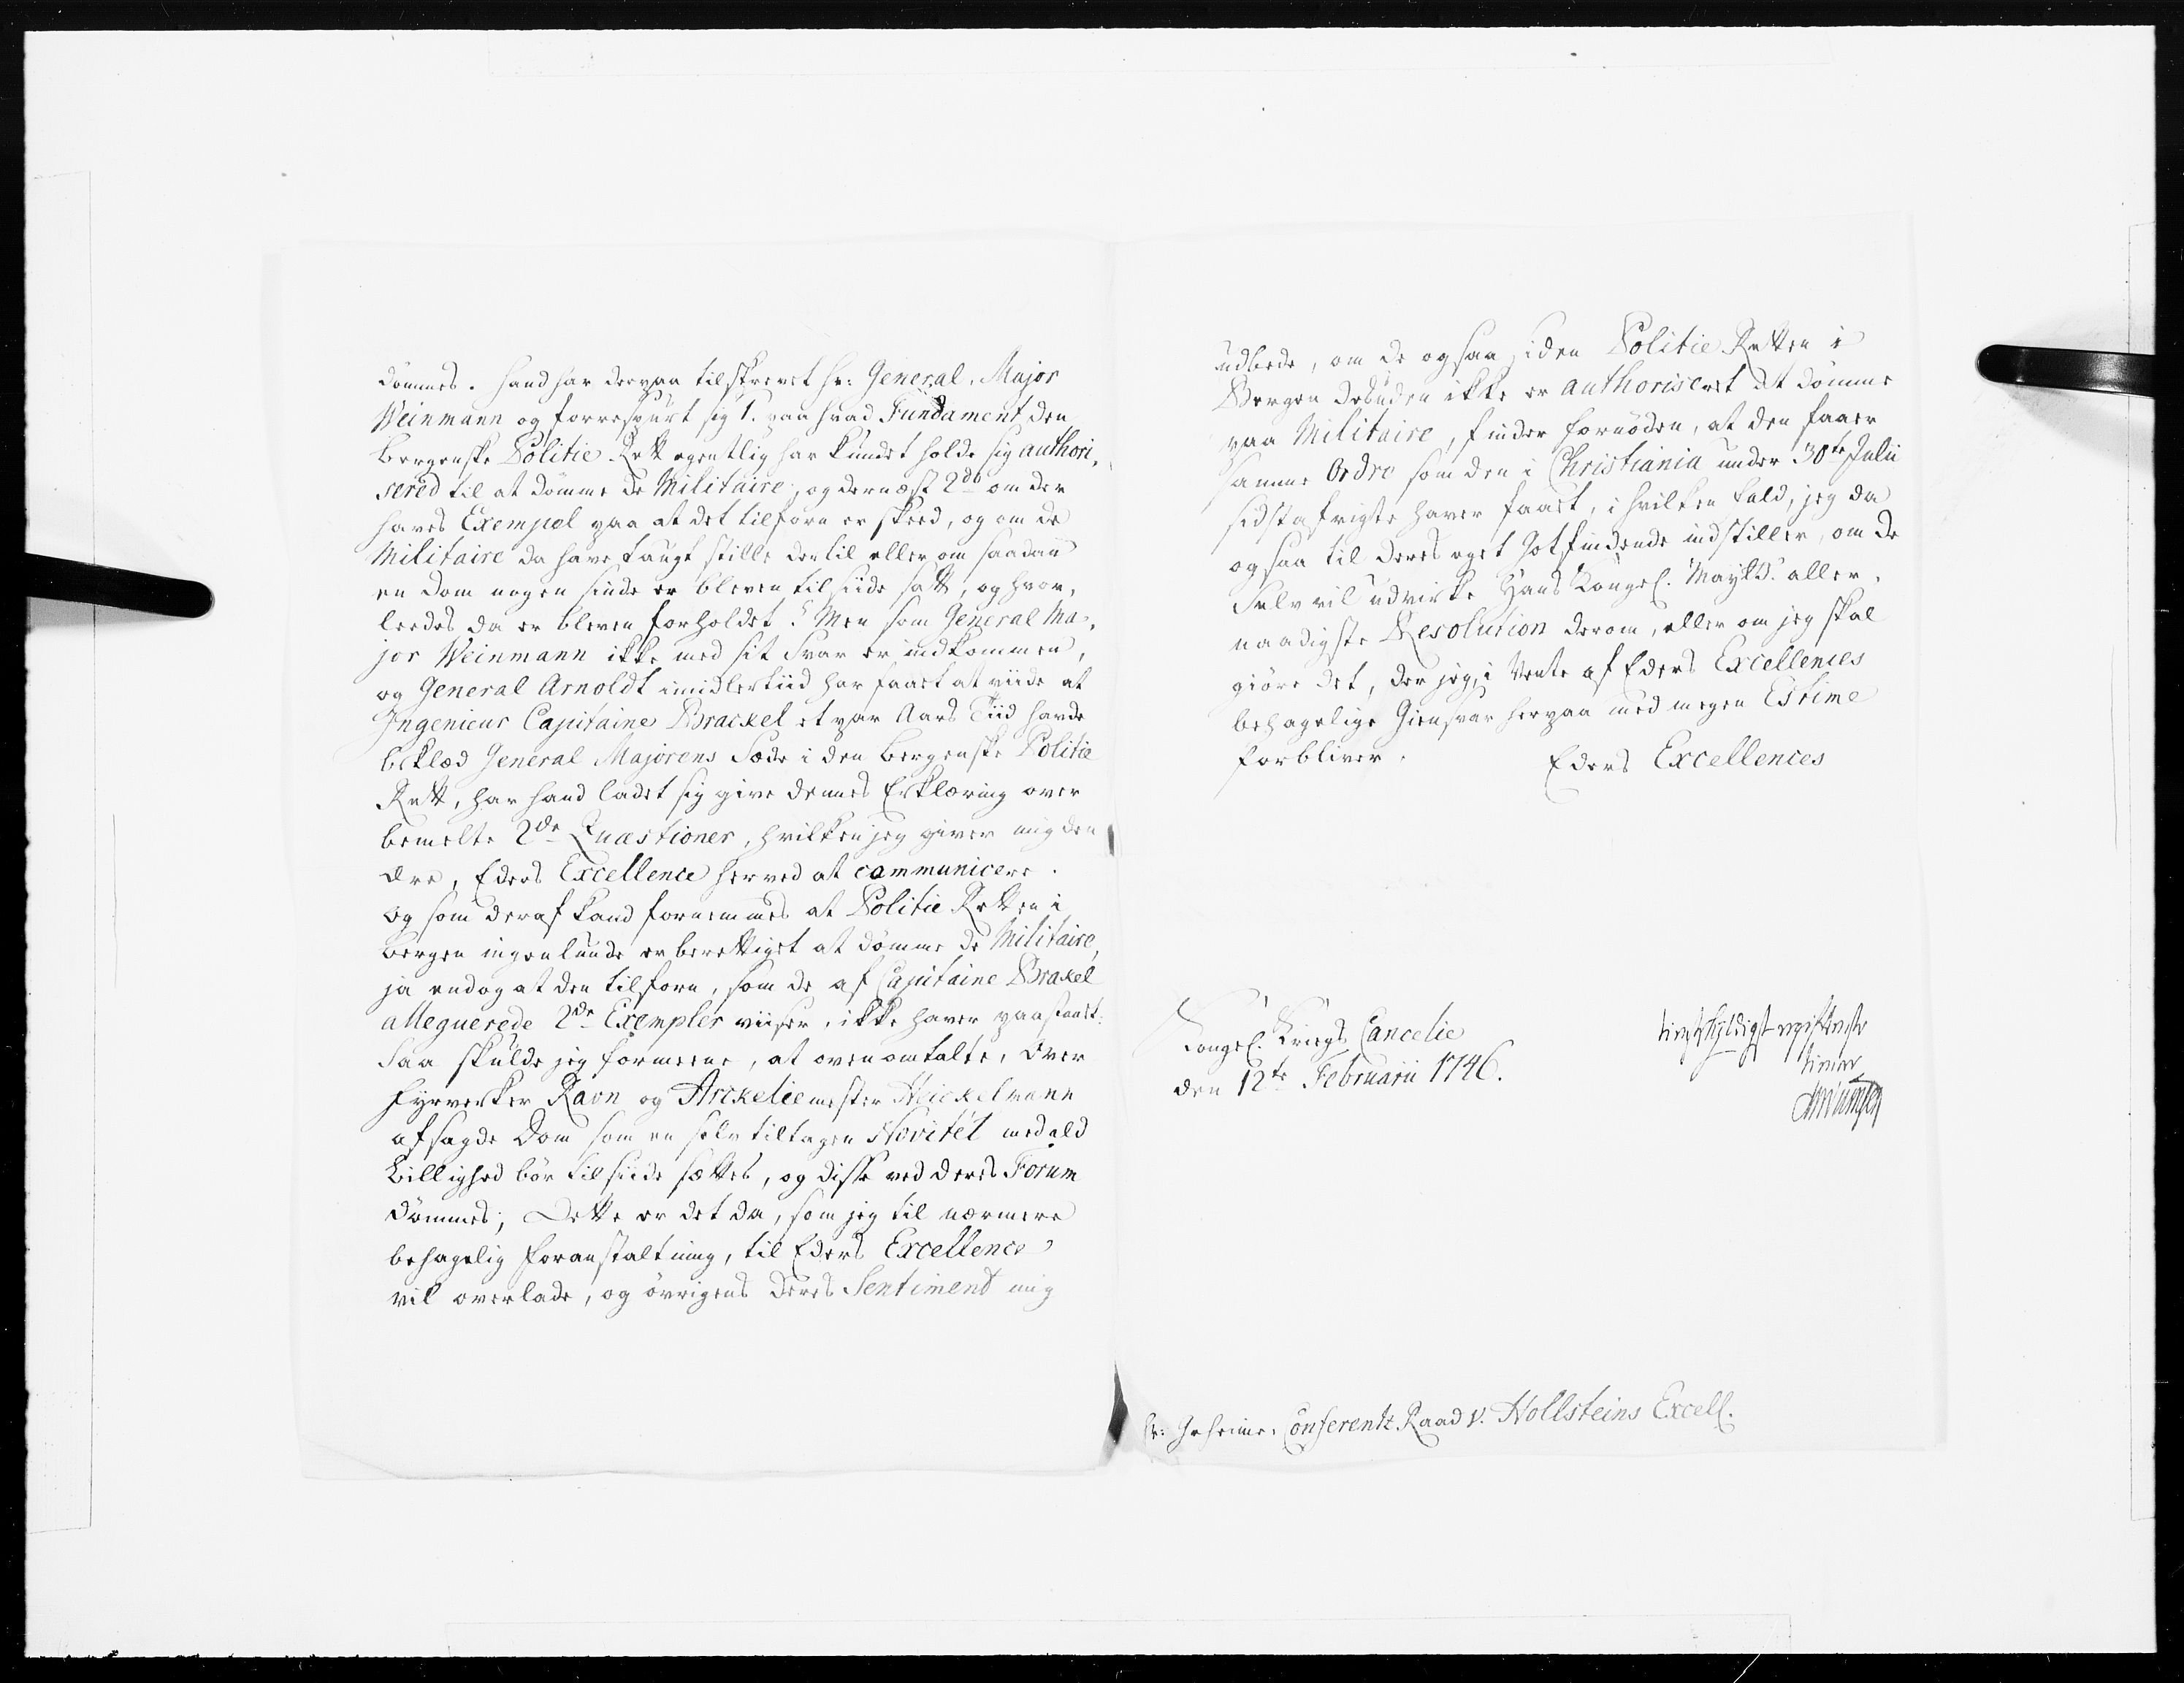 dömmes. Hand har derpaa tilskrevet Hr: General-Major
Weinmann og forrespurt sig 1. paa hvad Fundament den
Bergenske Politie Rett egentlig har kundet holde sig authori-
sered til at dömme de Militaire, og dernæst 2do om der
haves Exempel paa at det tilforn er skeed, og om de
Militaire da have taugt stille dertil eller om saadan
en Dom nogen sinde er bleven tilsiide satt, og hvor-
leedes da er bleven forholdet? Men som General Ma-
jor Weinmann ikke med sit Svar er indkommen,
og General Arnoldt imidlertiid har faaet at viide at
Ingenieur Capitaine Brackel et par Aars Tiid havde
beklæd General Majorens Sæde i den Bergenske Politie
Rett, har hand ladet sig give dennes Erklæring over
bemelte 2de Quæstioner, hvilken jeg giver mig den
Ære, Eders Excellence herved at communicere.
Og som deraf kand fornemmes at Politie Retten i
Bergen ingenlunde er berettiget at dömme de Militaire,
ja endog at den tilforn, som de af Capitaine Braxel
alleguerede 2de Exempler viiser, ikke haver paastaaet:
Saa skulde jeg formeene, at ovenomtalte, over
Fyrverker Ravn og Arckeliemester Meickelmann
afsagde Dom som en selv tiltagen Novitet med ald
Billighed bör tilsiide sættes, og disse ved deres Forum
dömmes; Dette er det da, som jeg til nærmere
behagelig Foranstaltning, til Eders Excellence
vil overlade, og övrigens deres Sentiment mig
udbede, om de og saa, iden Politie Retten i
Bergen desuden ikke er authoriseret at dömme
paa Militaire, finder fornöden, at den faaer
samme Ordre som den i Christiania under 30te Julii
sidstafvigte haver faaet, i hvilken fald, jeg da
og saa til deres eget Gotfindende indstiller, om de
Selv vil udvirke Hans Kongel. Mayts. aller-
naadigste Resolution derom, eller om jeg skal
giöre det, der jeg, i Vente af Eders Excellences
behagelige Giensvar herpaa med megen Estime
forbliver.
Eders Excellences
Kongel. Kriegs Cancelie
den 12te Februarii 1746.
tienstskyldigst
tiener
Hr: Geheime Conferentz Raad v. Hollsteins Excell.